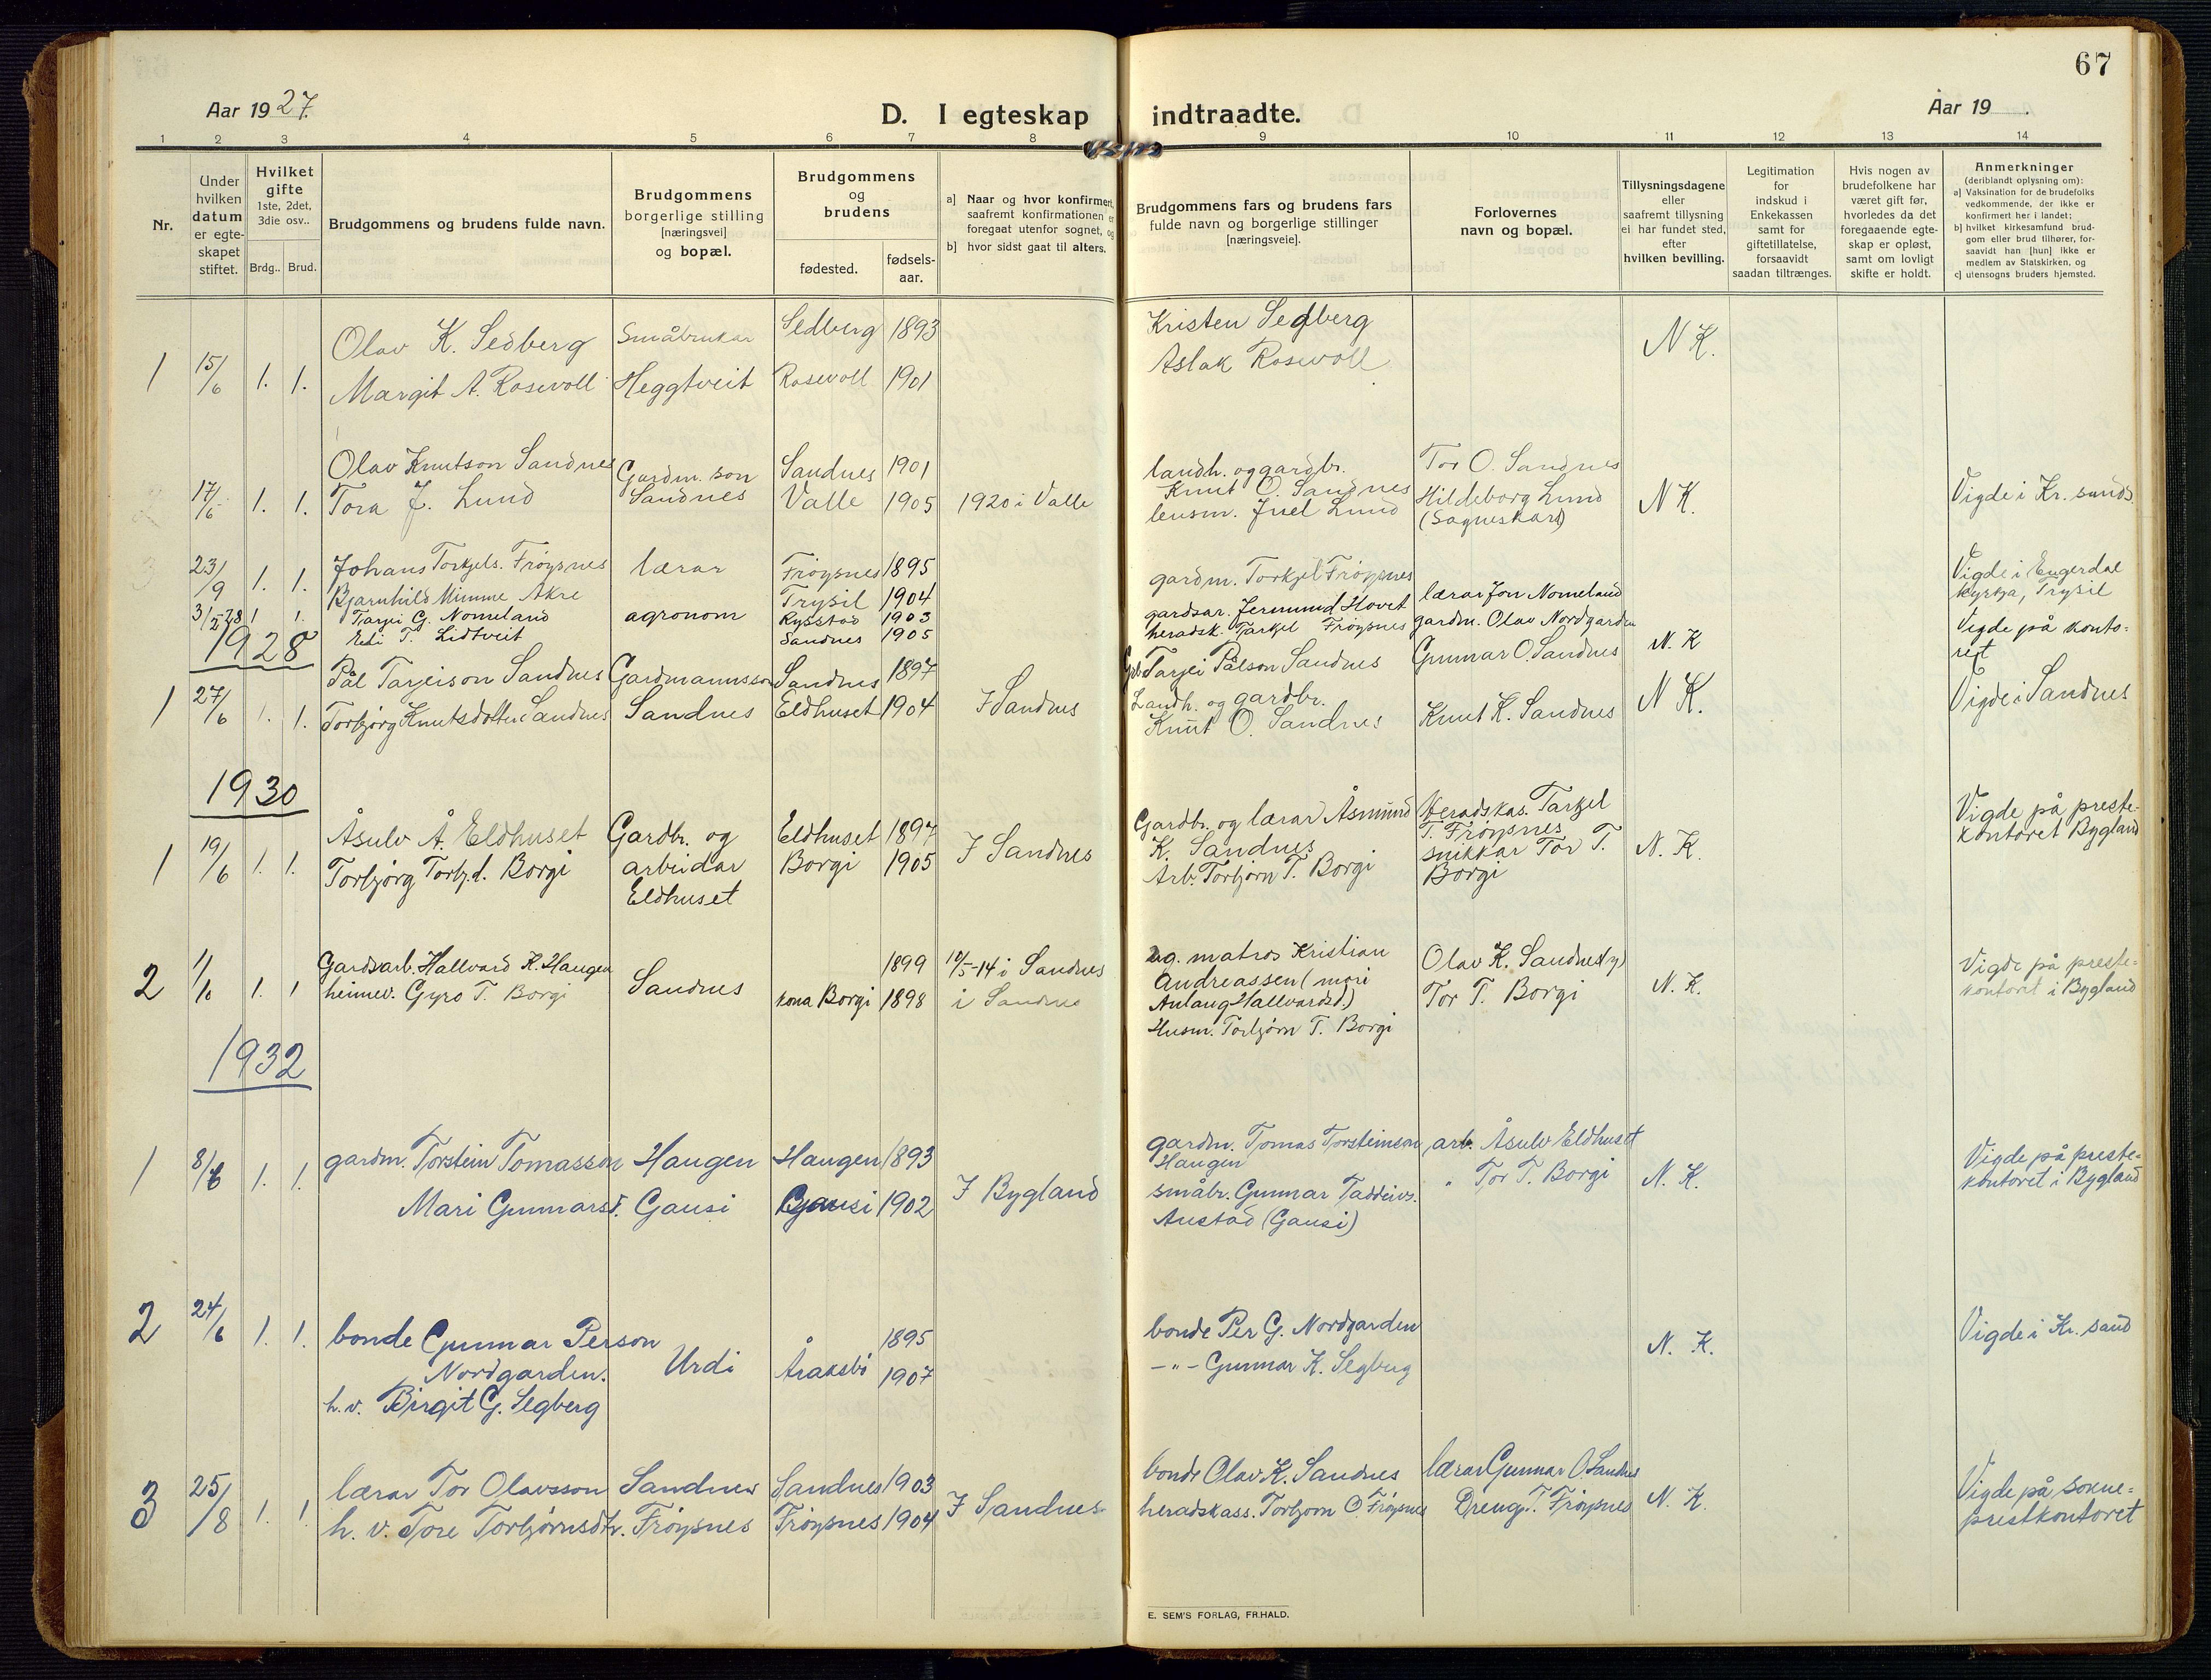 67
Aar 1927.
D. I egteskap indtraadte.
Aar 19
1 2 3 4 5 6 7 8 9 10 11 12 13 14
Nr.
Under hvilken datum er egte-skapet stiftet.
Hvilket gifte
1ste, 2det, 3die osv..
Brdg.. Brud.
Brudgommens og brudens fulde navn.
Brudgommens
borgerlige stilling
[næringsvei]
og bopæl.
Brudgommens
og
brudens
fødested.
fødsels-
aar.
a) Naar og hvor konfirmert,
saafremt konfirmationen er
foregaat utenfor sognet, og
b) hvor sidst gaat til alters.
Brudgommens fars og brudens fars
fulde navn og borgerlige stillinger
[næringsveie].
Forlovernes
navn og bopæl.
Tillysningsdagene
eller
saafremt tillysning
ei har fundet sted,
efter
hvilken bevilling.
Legitimation
for
indskud i
Enkekassen
samt for
giftetillatelse,
forsaavidt
saadan tiltrænges.
Hvis nogen av
brudefolkene har
været gift før,
hvorledes da det
foregaaende egte-
skap er opløst,
samt om lovligt
skifte er holdt.
Anmerkninger
(deriblandt oplysning om):
a) Vaksination for de brudefolks
vedkommende, der ikke er
konfirmert her i landet;
b) hvilket kirkesamfund brud-
gom eller brud tilhører, for-
saavidt han [hun] ikke er
medlem av Statskirken, og
c) utensogns bruders hjemsted.
Olav K. Sedberg Småbrukar Sedberg 1893 Kristen Segberg
1 15/6 1. 1. Margit A. Rosevoll Heggtveit Rosevoll 1901 Aslak Rosevoll N K.
Olav Knutson Sandnes Gardm. son Sandnes 1901 landh. og gardbr. Tor O. Sandnes
Knut O. Sandnes
17/6 1. 1. Tora J. Lund Sandnes Valle 1905 1920 i Valle lensm. Juel Lund Hildeborg Lund N K. Vigde i Kr. sands
(Sagneskard)
23/9 1. 1. Johans Torkjels. Frøysnes lærar Frøysnes 1895 gardm. Torkjel Frøysnes Vigde i Engerdal
Bjarnhild Mimme Akre Trysil 1904 gardsar. Jermund Hovet lærar Jon Nomeland kyrkja, Trysil
1 1. Tarjei G. Nomeland agronom Rysstad 1903 heradsk. Tarkel Frøysnes gardm. Olav Nordgarden Vigde på konto-
T. Lidtveit Sandnes 1905 N. K
1928
Pål Tarjeison Sandnes Gardmannsson Sandnes 1897 Tarjei Pålson Sandnes Gunnar O. Sandnes
1 27/6 1. 1. Torbjørg Knutsdotter Sandnes Sandnes Eldhuset 1904 I Sandnes Landh. og gardbr. N K. Vigde i Sandnes
Knut O. Sandnes Knut K. Sandnes
1930
Åsulv Å. Eldhuset Gardbr. og Eldhuset 1897 Gardbr. og lærar Åsmund Heradskas. Tarkel Vigde på preste-
T. Frøysnes kontoret Bygland
1 19/6 1. 1. Torbjørg Torbj.d. Borgi arbeidar Borgi 1905 I Sandnes K. Sandnes snikkar Tor T. N. K.
Eldhuset Arb. Torbjørn T. Borgi Borgi
Gardsarb. Hallvard K. Haugen 1899 10/5-14 i Sandnes matros Kristian Olav K. Sandnes Vigde på preste-
2 1/10 1. 1 heimev. Gyro T. Borgi Sandnes Borgi 1898 i Sandnes Andreassen (mori Tor T. Borgi N. K. kontoret i Bygland
Anlaug Hallvardsd.)
Husm. Torbjørn T. Borgi
1932
gardm. Torstein Tomasson Haugen Haugen 1893 gardm. Tomas Torsteinson arb. Åsulv Eldhuset Vigde på preste-
Haugen
1 8/6 1. 1. Mari Gunnarsd. Gausi Gausi 1902 I Bygland småbr. Gunnar Taddeivs. " Tor T. Borgi N. K. kontoret i Bygland
Austad (Gausi)
2 24/6 1. 1. bonde Gunnar Person 1895 bonde Per G. Nordgarden Vigde i Kr. sand
Nordgarden. Urdi Åraksbø 1907 - " - Gunnar K. Segberg N. K.
h. v. Birgit G. Segberg
lærar Tor Olavsson Sandnes Sandnes 1903 bonde Olav K. Sandnes lærar Gunnar O. Sandnes Vigde på sokne-
3 25/8 1. 1 h. v. Tore Torbjørnsdtr. Frøysnes Frøysnes 1904 I Sandnes heradskass. Torbjørn O. Frøysnes Dreng T. Frøysnes N. K. prestkontoret
E. SEM'S FORLAG, FR.HALD.